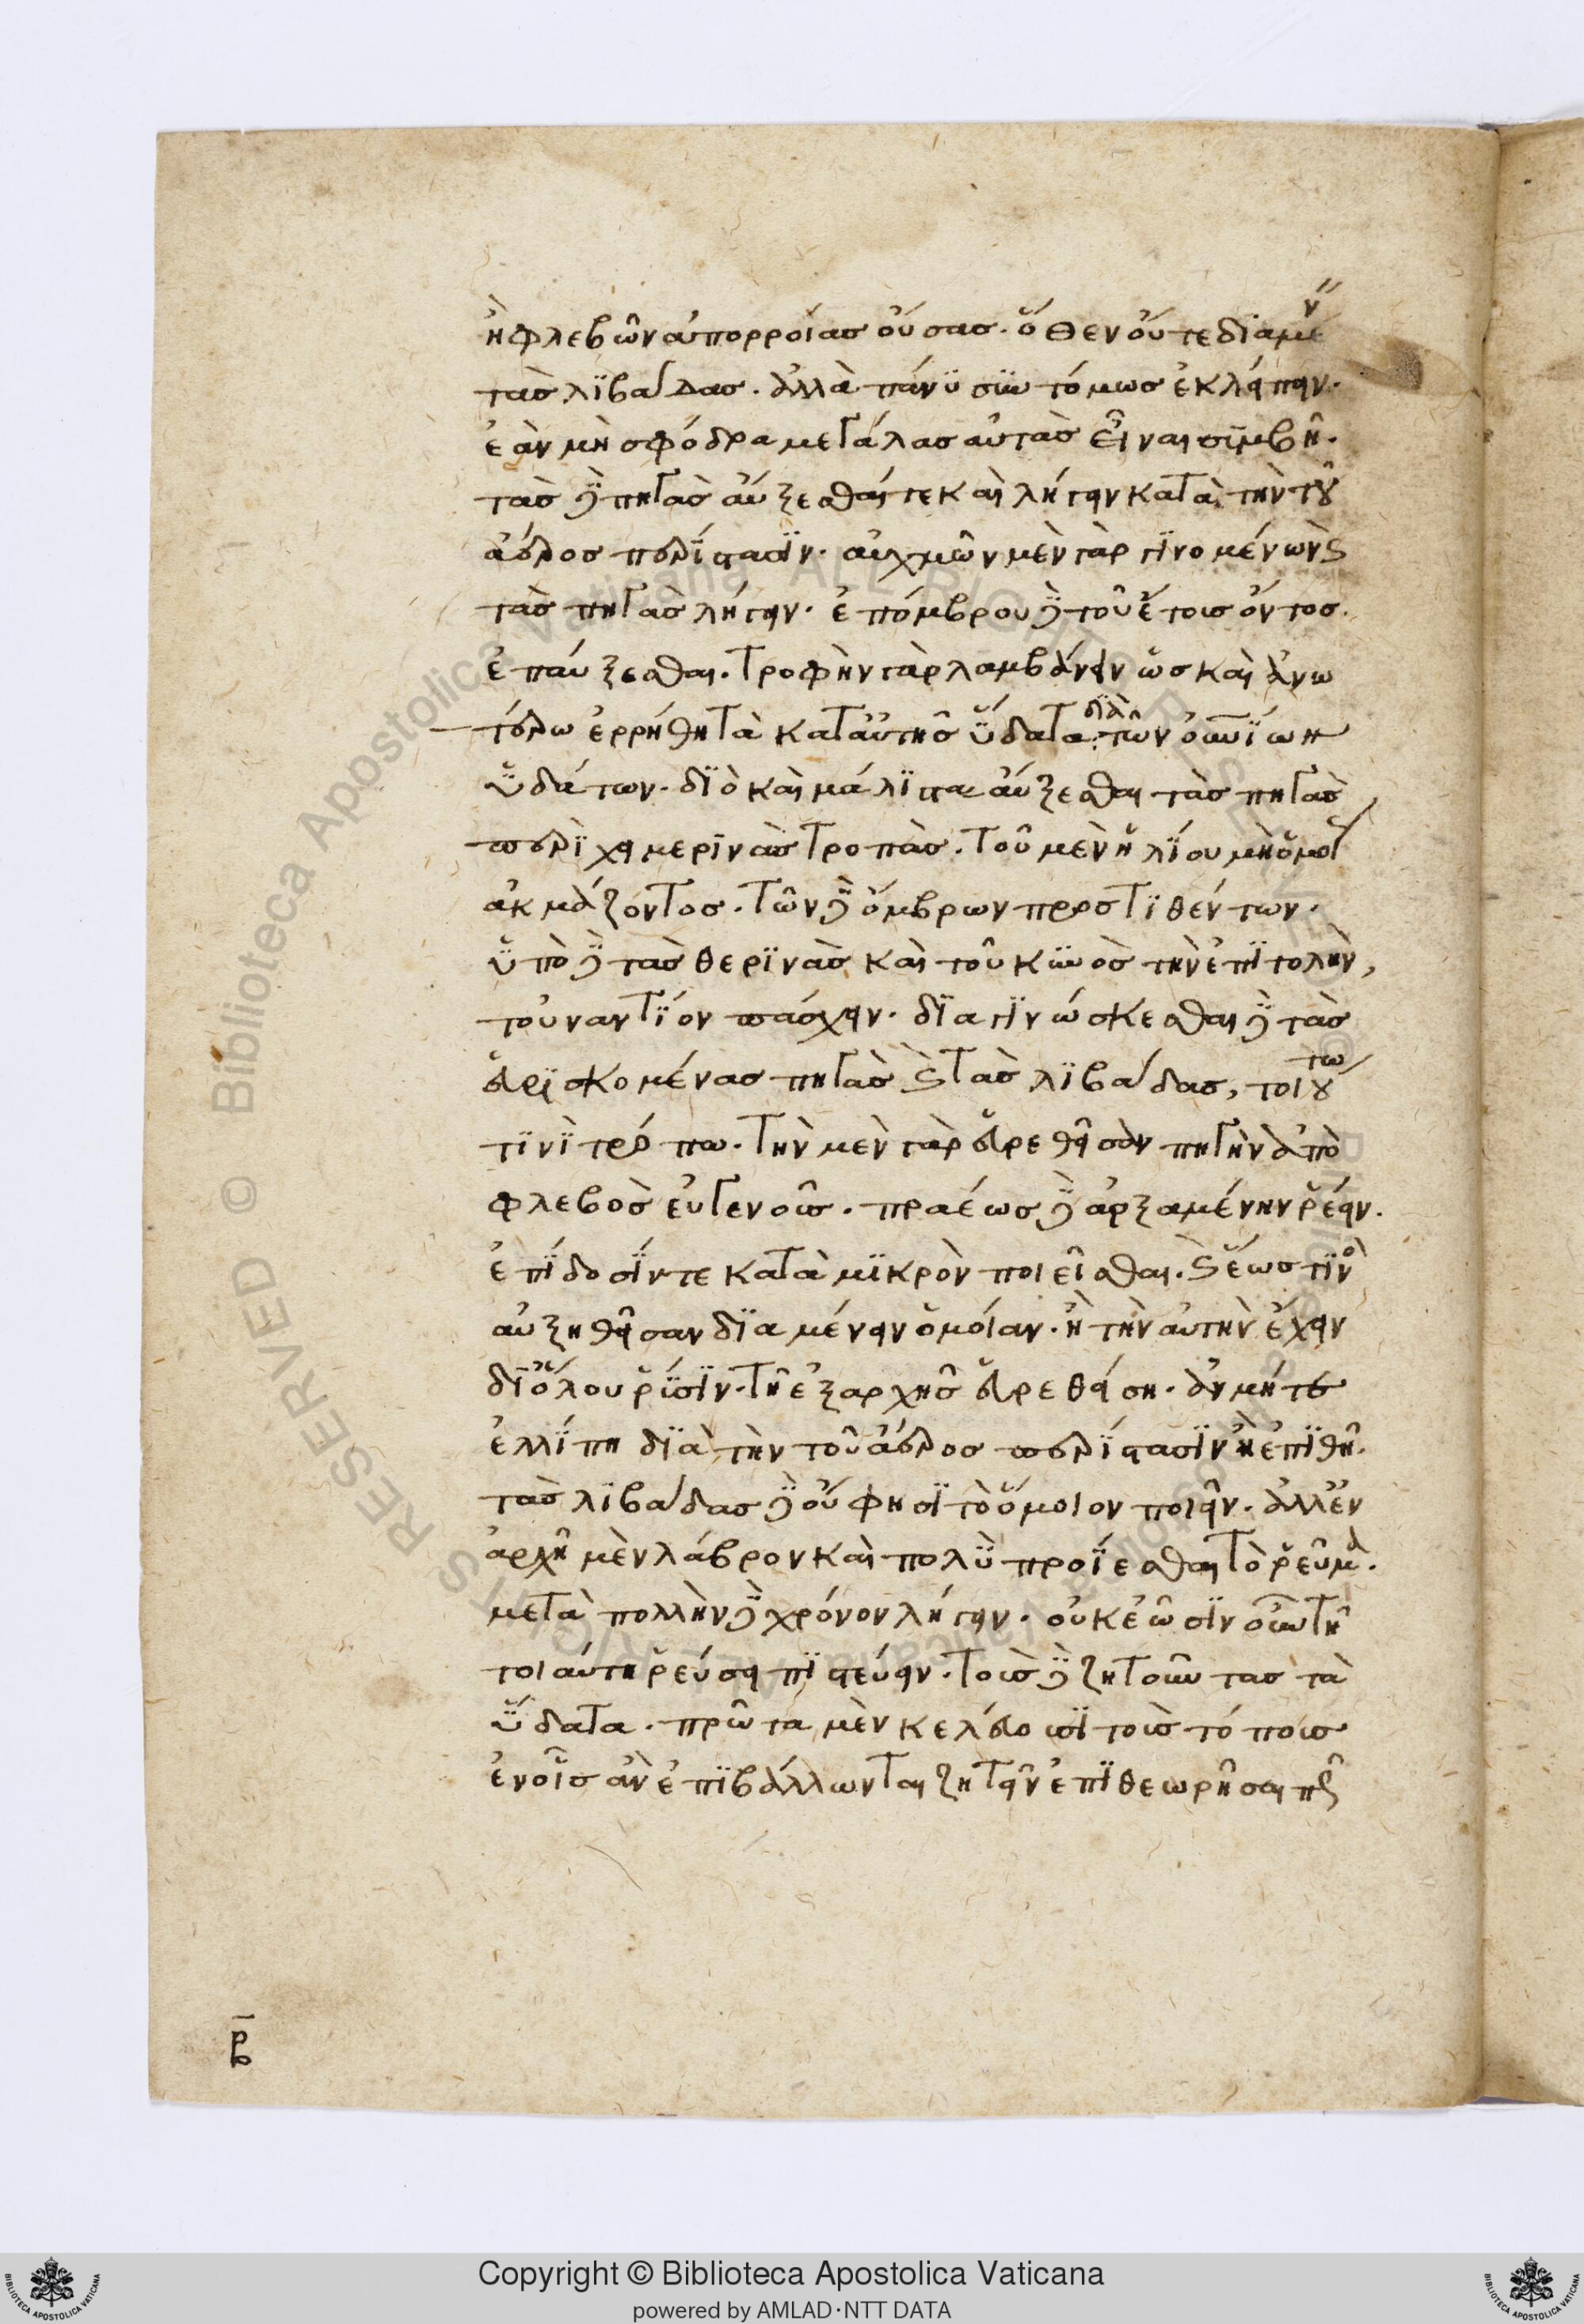 ἢ φλεβῶν ἀπορροίας οὔσας. ὅθεν οὔτε διαμέν
τὰς λιβάδας. ἀλλὰ πάνυ συντόμως ἐκλείπειν.
ἐὰν μὴ σφόδρα μεγάλας αὐτὰς εἶναι συμβῆ.
τὰς δὲ πηγὰς αὔξεσθαί τε καὶ λήγειν κατὰ τὴν τοῦ
ἀέρος περίστασιν. αὐχμῶν μὲν γὰρ γινομένων καὶ
τὰς πηγὰς λήγειν. ἐπόμβρου δὲ τοῦ ἔτους ὄντος.
ἐπαύξεσθαι. τροφὴν γὰρ λαμβάνειν ὡς καὶ ἀνω
τέρω ἐρρήθη τὰ κατ αὐτῆς ὕδατα διὰ τῶν οὐνίων
ὑδάτων. διὸ καὶ μάλιστα αὔξεσθαι τὰς πηγὰς
περὶ χειμερινὰς τροπὰς. τοῦ μὲν ἡλίου μὴ ὁμοί
ἀκμάζοντος. τῶν δὲ ὄμβρων προστιθέντων.
ὑπὸ δὲ τὰς θερινὰς καὶ τοῦ κυνὸς τὴν ἐπιτολὴν,
τοὐναντίον πάσχειν. διαγινώσκεσθαι δὲ τὰς
εὑρισκομένας πηγὰς καὶ τὰς λιβάδας, τοιούτω
τινὶ τρόπω. τὴν μὲν γὰρ εὑρεθεῖσαν πηγὴν ἀπὸ
φλεβὸς εὐγενοῦς. πραέως δὲ ἀρξαμένην ῥέειν.
ἐπίδοσίν τε κατὰ μικρὸν ποιεῖσθαι. καὶ ἕως τινὸ
αὐξηθεῖσαν διαμένειν ὁμοίαν. ἢ τὴν αὐτὴν ἔχειν
διόλου ῥύσιν. τῆ ἐξαρχῆς εὑρεθείση. ἂν μήτε
ἐλλίπη διὰ τὴν τοῦ ἀέρος περίστασιν ἢ ἐπιθῆ.
τὰς λιβάδας δὲ οὔ φησι τὸ ὅμοιον ποιεῖν. ἀλλ ἐν
ἀρχῆ μὲν λάβρον καὶ πολὺ προΐεσθαι τὸ ῥεῦμα.
μετὰ πολλὴν δὲ χρόνον λήγειν. οὐκ ἐῶσιν οὖν τῆ
τοιαύτη ῥεύσει πιστεύειν. τοὺς δὲ ζητοῦντας τὰ
ὕδατα. πρῶτα μὲν κελεύουσι τοῖς τόποις
ἐν οἷς ἂν ἐπιβάλλωνται ζητεῖν ἐπιθεωρῆσαι
Copyright © Biblioteca Apostolica Vaticana
powered by AMLAD·NTT DATA